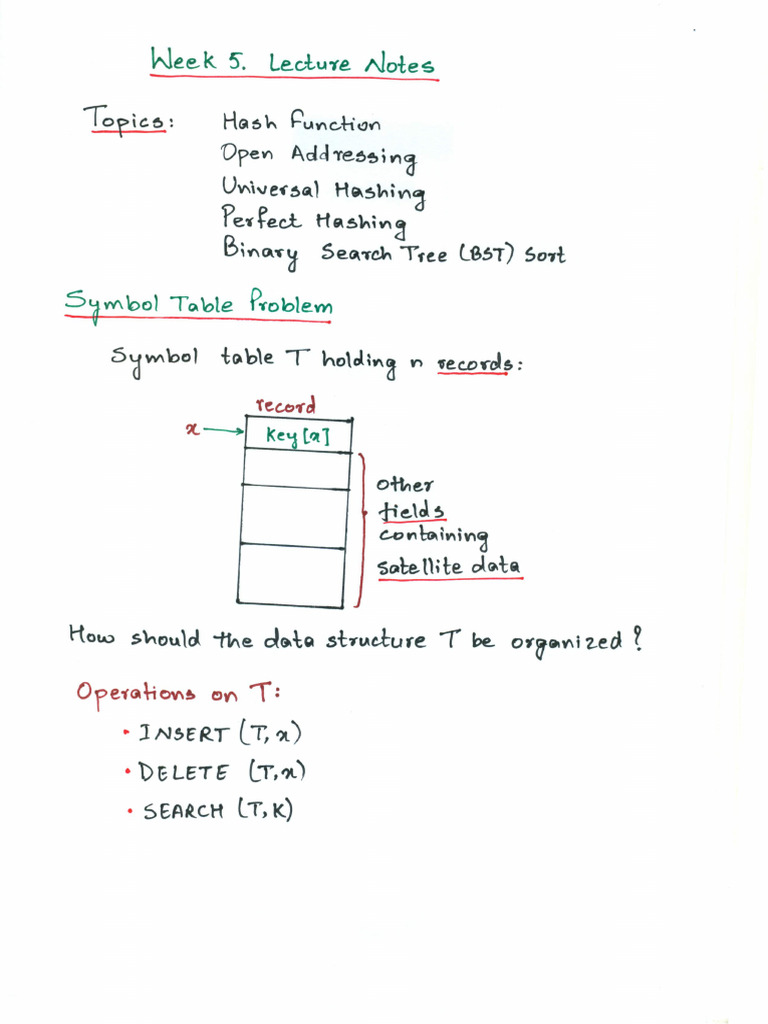 Week 5. Lecture Notes
Topics: Hash Function
Open Addressing
Universal Hashing
Perfect Hashing
Binary Search Tree (BST) Sort
Symbol Table Problem
Symbol table T holding n records:
record
x → key[x]
other
fields
containing
satellite data
How should the data structure T be organized?
Operations on T:
• INSERT (T, x)
• DELETE (T, x)
• SEARCH (T, K)